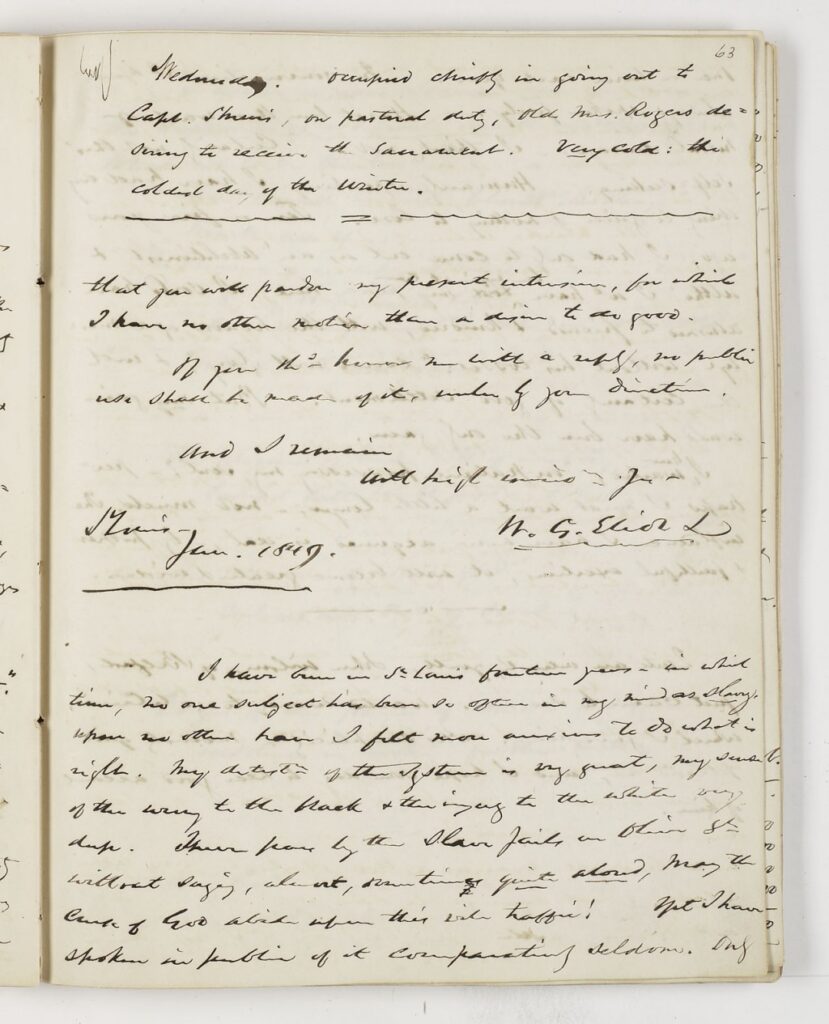 63
Wednesday. occupied chiefly in going out to
Capt. on pastoral duty, old Mrs. Rogers de=
siring to receive the Sacrament. Very cold: the
coldest day of the Winter.
that you will pardon my present intrusion, for which
I have no other motive than a desire to do good.
If you shd. honor me with a reply, no public
use shall be made of it, unless by your direction.
And I remain
with high
W. G. Eliot
St Louis
Jan. 1849.
I have been in St. Louis fourteen years - in which
time, no one subject has been so often in my mind as slavery.
upon no other have I felt more anxious to do what is
right. My of the System is very great, my sense
of the wrong to the black & the injury to the white very
deep. I never pass by the Slave Jails on Olive St.
without saying, almost, sometimes quite aloud, May the
Curse of God abide upon this vile traffic! Yet I have
spoken in public of it comparatively seldom. Only